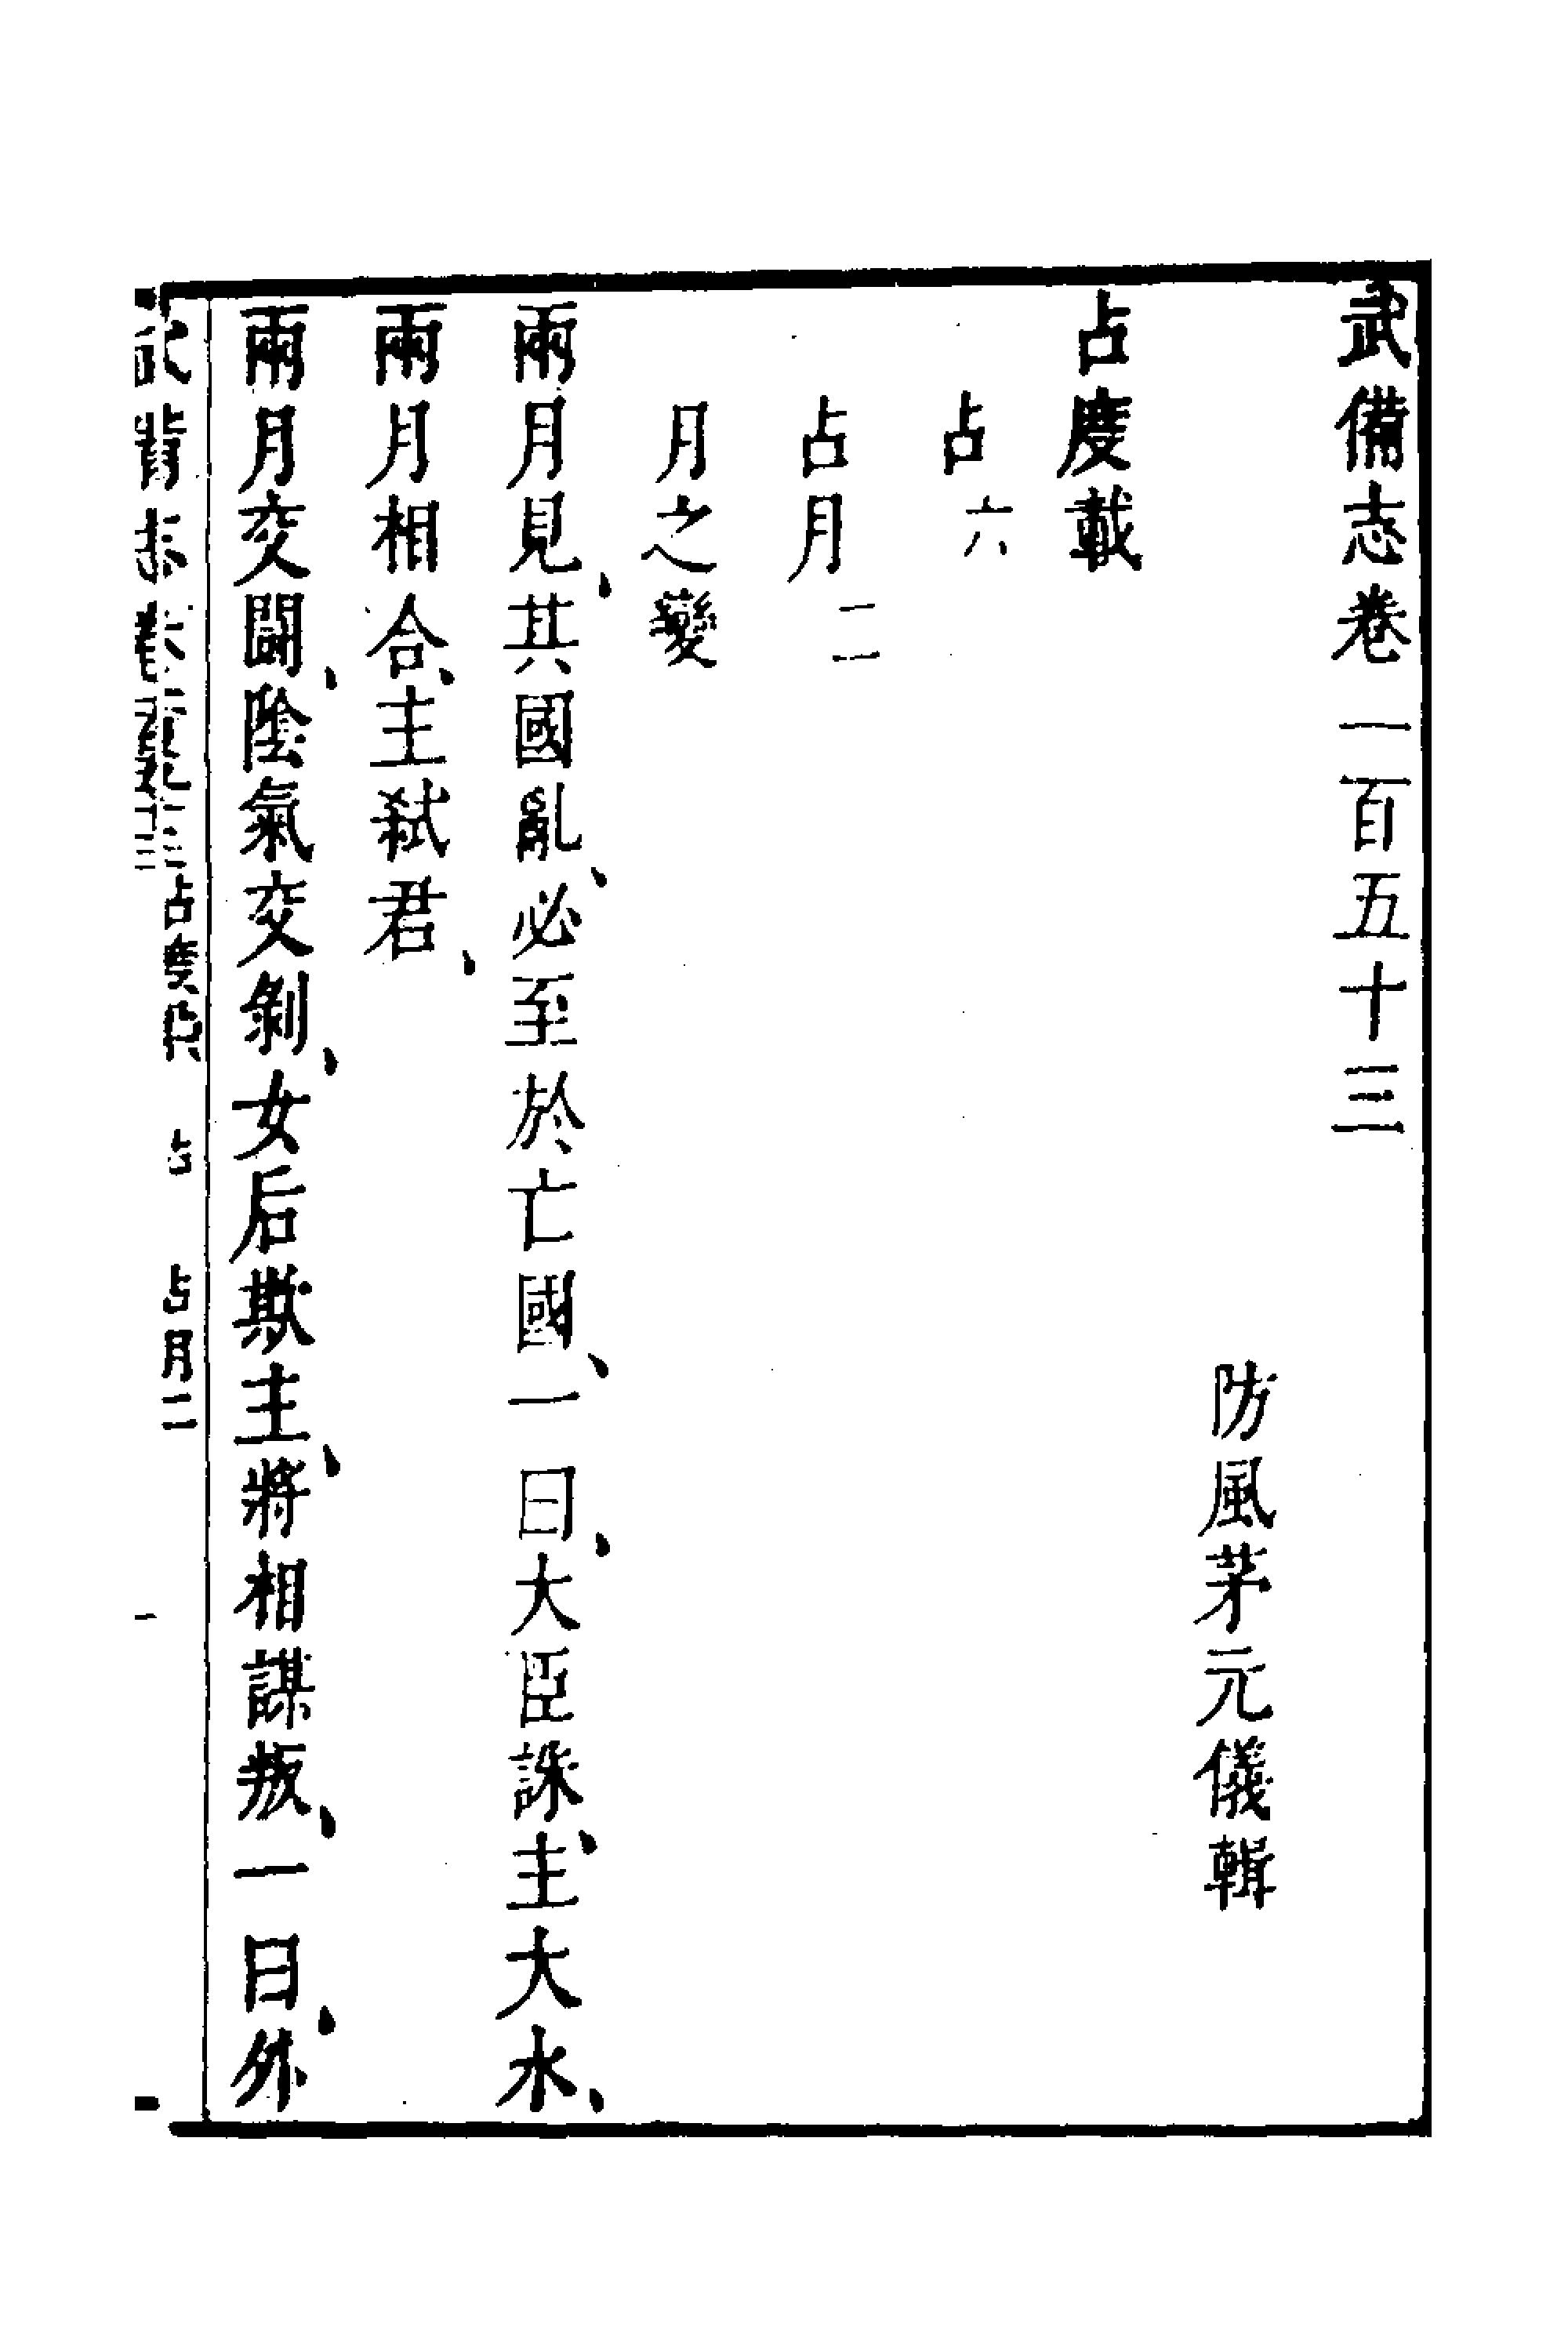 武備志卷一百五十三
防風茅元儀輯
占度載
占六
占月二
月之變
兩月見、其國亂、必至於亡國、一曰、大臣誅、主大水、
兩月相合、主弑君、
兩月交鬪、陰氣交剝、女后欺主、將相謀叛、一曰、外
占度載 占 占月二